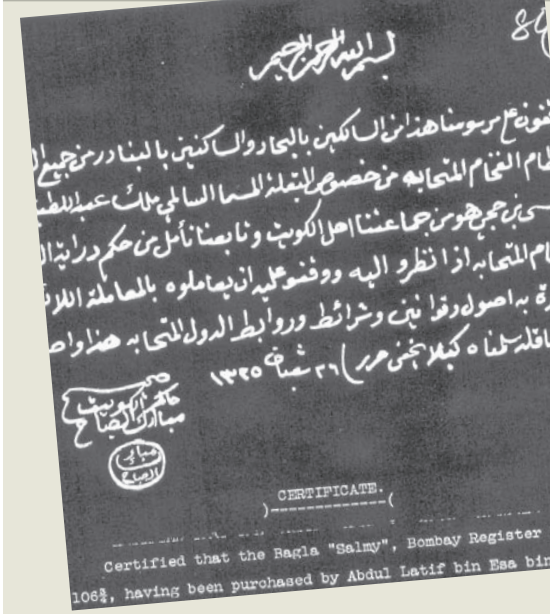 بسم الله الرحمن الرحيم
على مرسومنا هذا من السالكين بالبحار والساكنين بالبنادر من جميع
الفخام المتحابه من خصوص البغلة المسما السالمي ملك عبد اللطيف
بن حجي هو من جماعتنا اهل الكويت وتابعنا نأمل من حكم دراية
المتحابه اذا نظرو اليه ووقفو عليه ان يعاملوه بالمعاملة
به اصول وقوانين وشرائط وروابط الدول المتحابه هذا
سلمناه كيلا يخفى حرر ) ٢٦ شعبان ١٣٢٥
حاكم الكويت
مبارك الصباح
مبارك
الصباح
CERTIFICATE.
)-------------(
Certified that the Bagla "Salmy", Bombay Register
106¾, having been purchased by Abdul Latif bin Esa bin